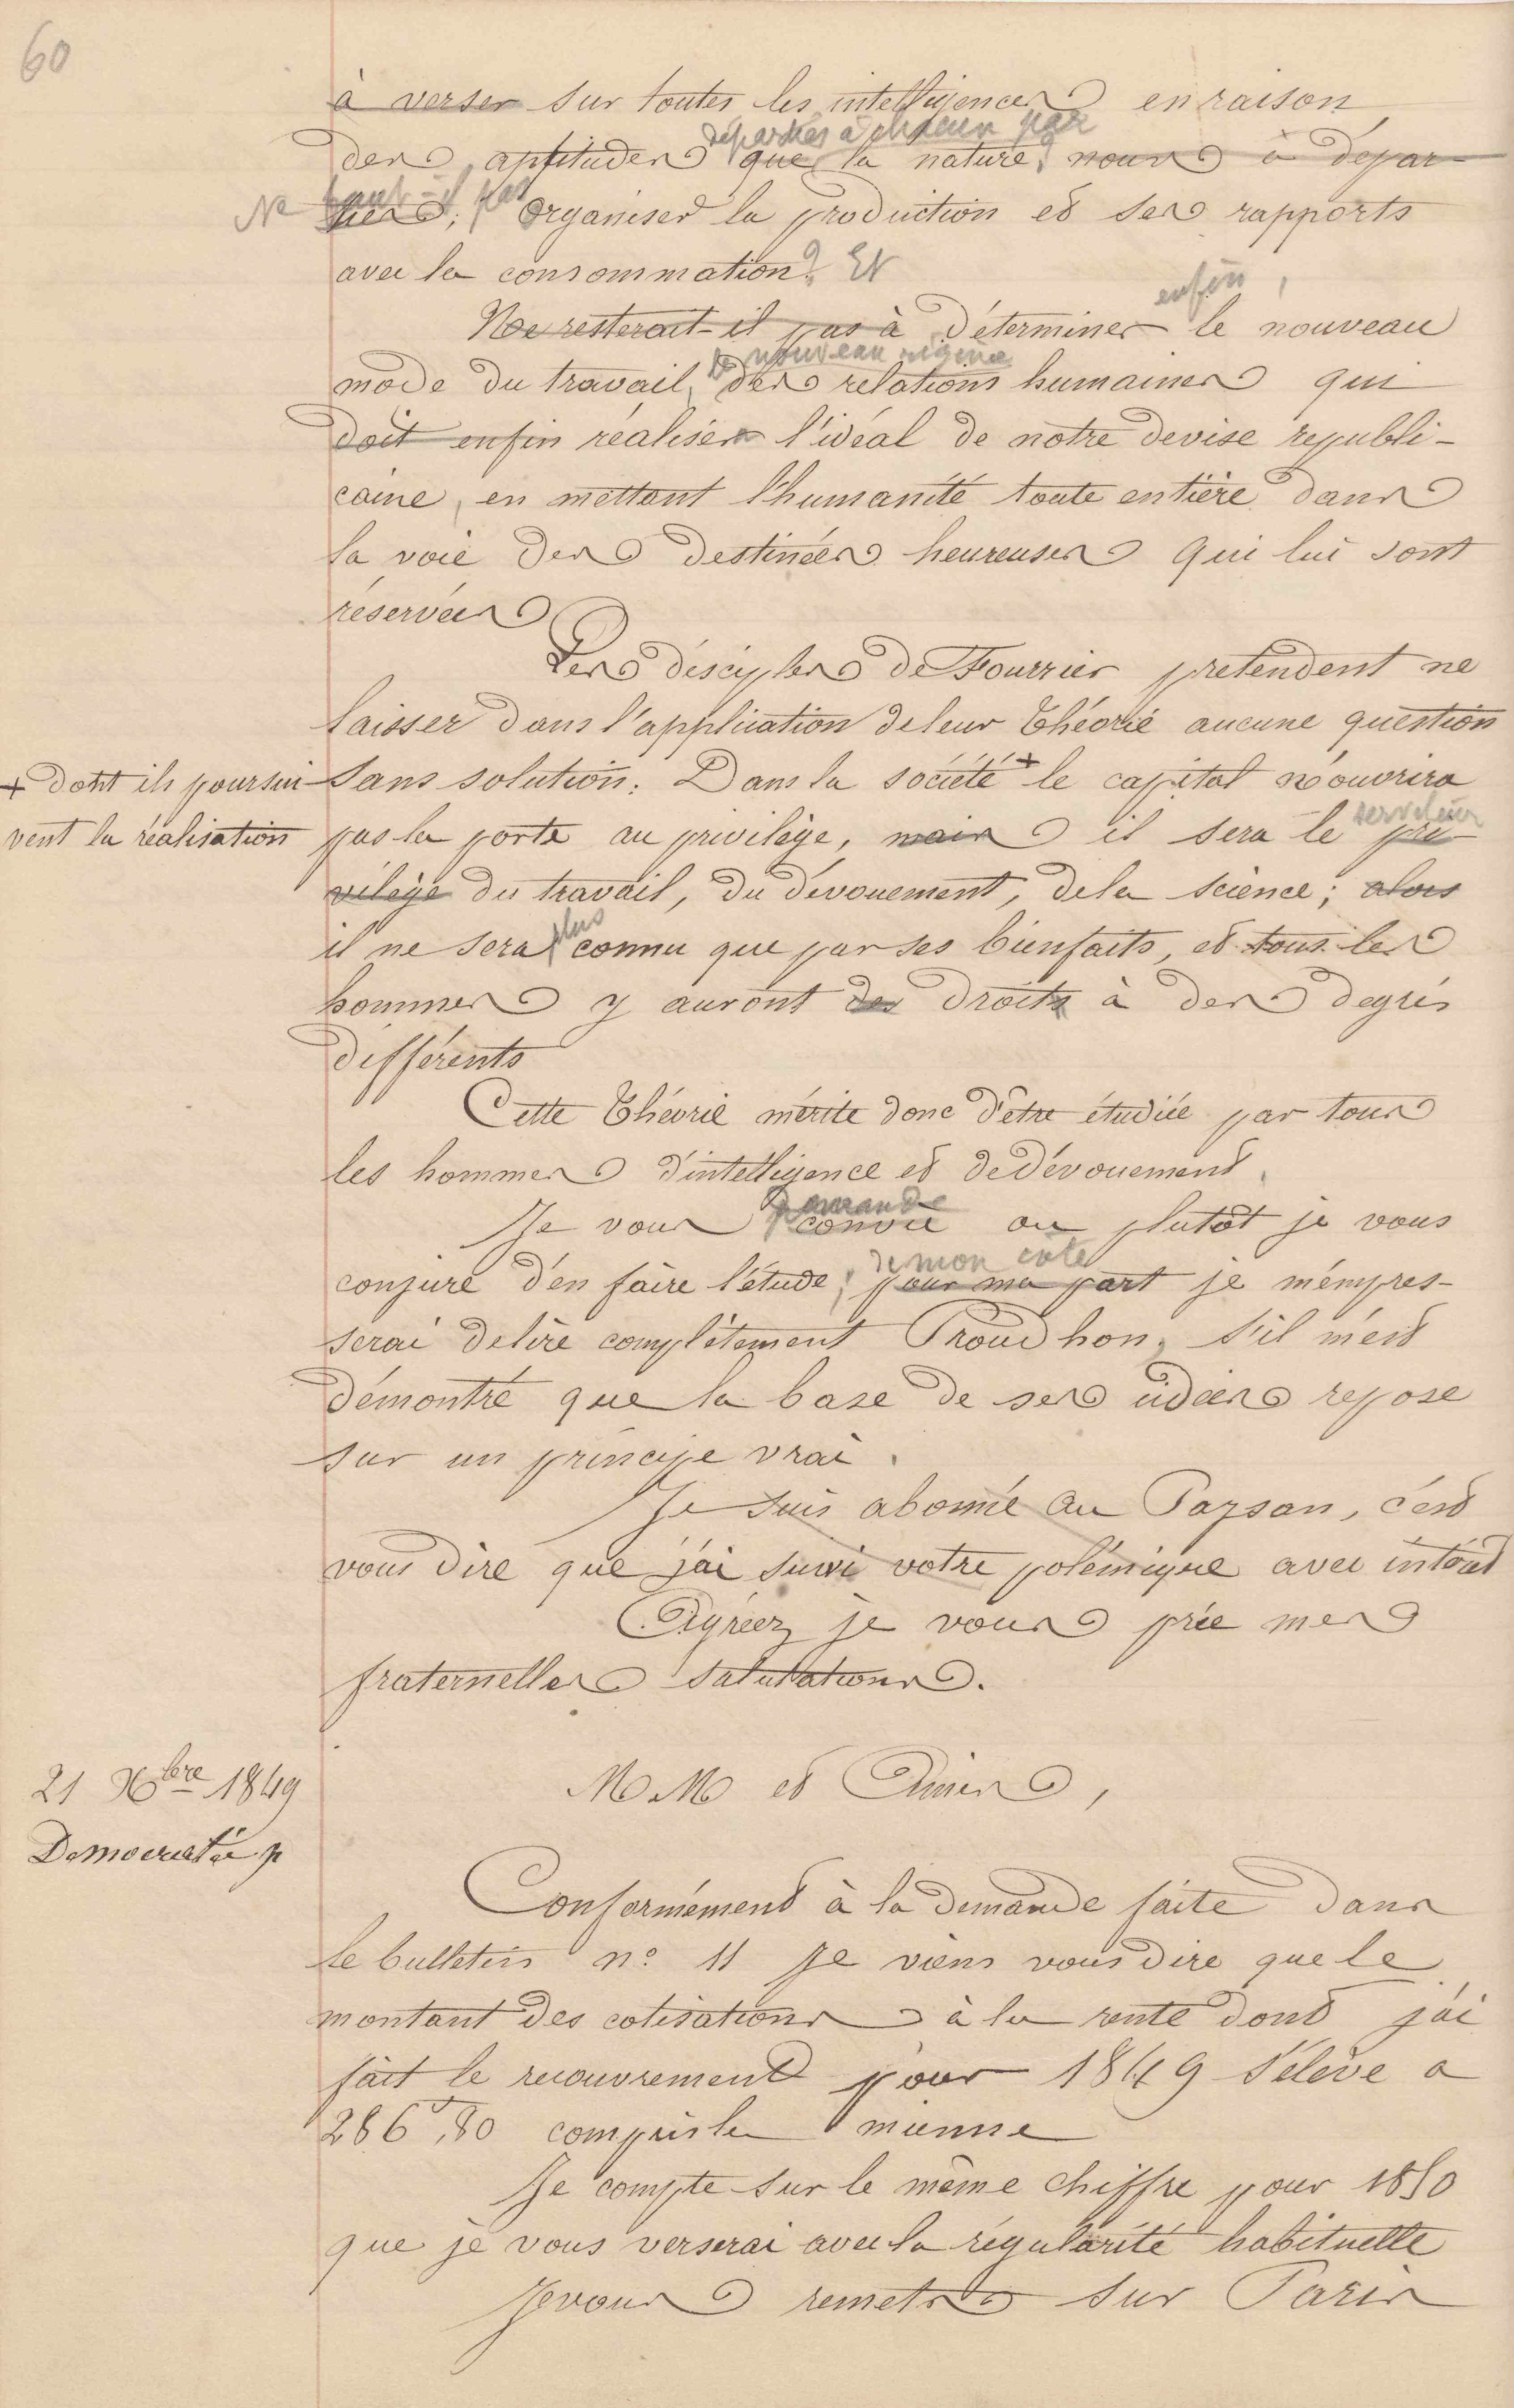 60
à verser sur toutes les intelligences en raison
départies à chacun par
des aptitudes que la nature nous a dépar-
Ne faut-il pas
ties; organiser la production et ses rapports
avec la consommation? Et
enfin,
Ne resterait-il pas à déterminer le nouveau
le nouveau régime
mode du travail, des relations humaines qui
doit enfin réaliser l'idéal de notre devise republi-
caine, en mettant l'humanité toute entière dans
la voie des destinées heureuses qui lui sont
réservées
Les disciples de Fourrier pretendent ne
laisser dans l'application de leur Théorie aucune question
+ dont ils poursui
sans solution. Dans la société + le capital n'ouvrira
vent la réalisation
serviteur
pas la porte au privilège, mais il sera le pri-
vilège du travail, du dévouement, de la science; alors
plus
il ne sera connu que par ses bienfaits, et tous les
hommes y auront des droits à des degrés
différents
Cette Théorie mérite donc d'être étudiée par tous
les hommes d'intelligence et de dévouement.
demande
Je vous convie ou plutôt je vous
de mon coté
conjure d'en faire l'étude, pour ma part je m'empres-
serai de lire complètement Proudhon, s'il m'est
démontré que la base de ses idées repose
sur un principe vrai.
Je suis abonné au Paysan, c'est
vous dire que j'ai suivi votre polémique avec intérêt
Agréez je vous prie mes
fraternelles salutations.
21 Xbre 1849
Democratie p
M.M et Amis,
Conformément à la demande faite dans
le bulletin n° 11 je viens vous dire que le
montant des cotisations à la rente dont j'ai
fait le recouvrement pour 1849 s'élève a
286f,80 compris la mienne
Je compte sur le même chiffre pour 1850
que je vous verserai avec la régularité habituelle
Je vous remets sur Paris